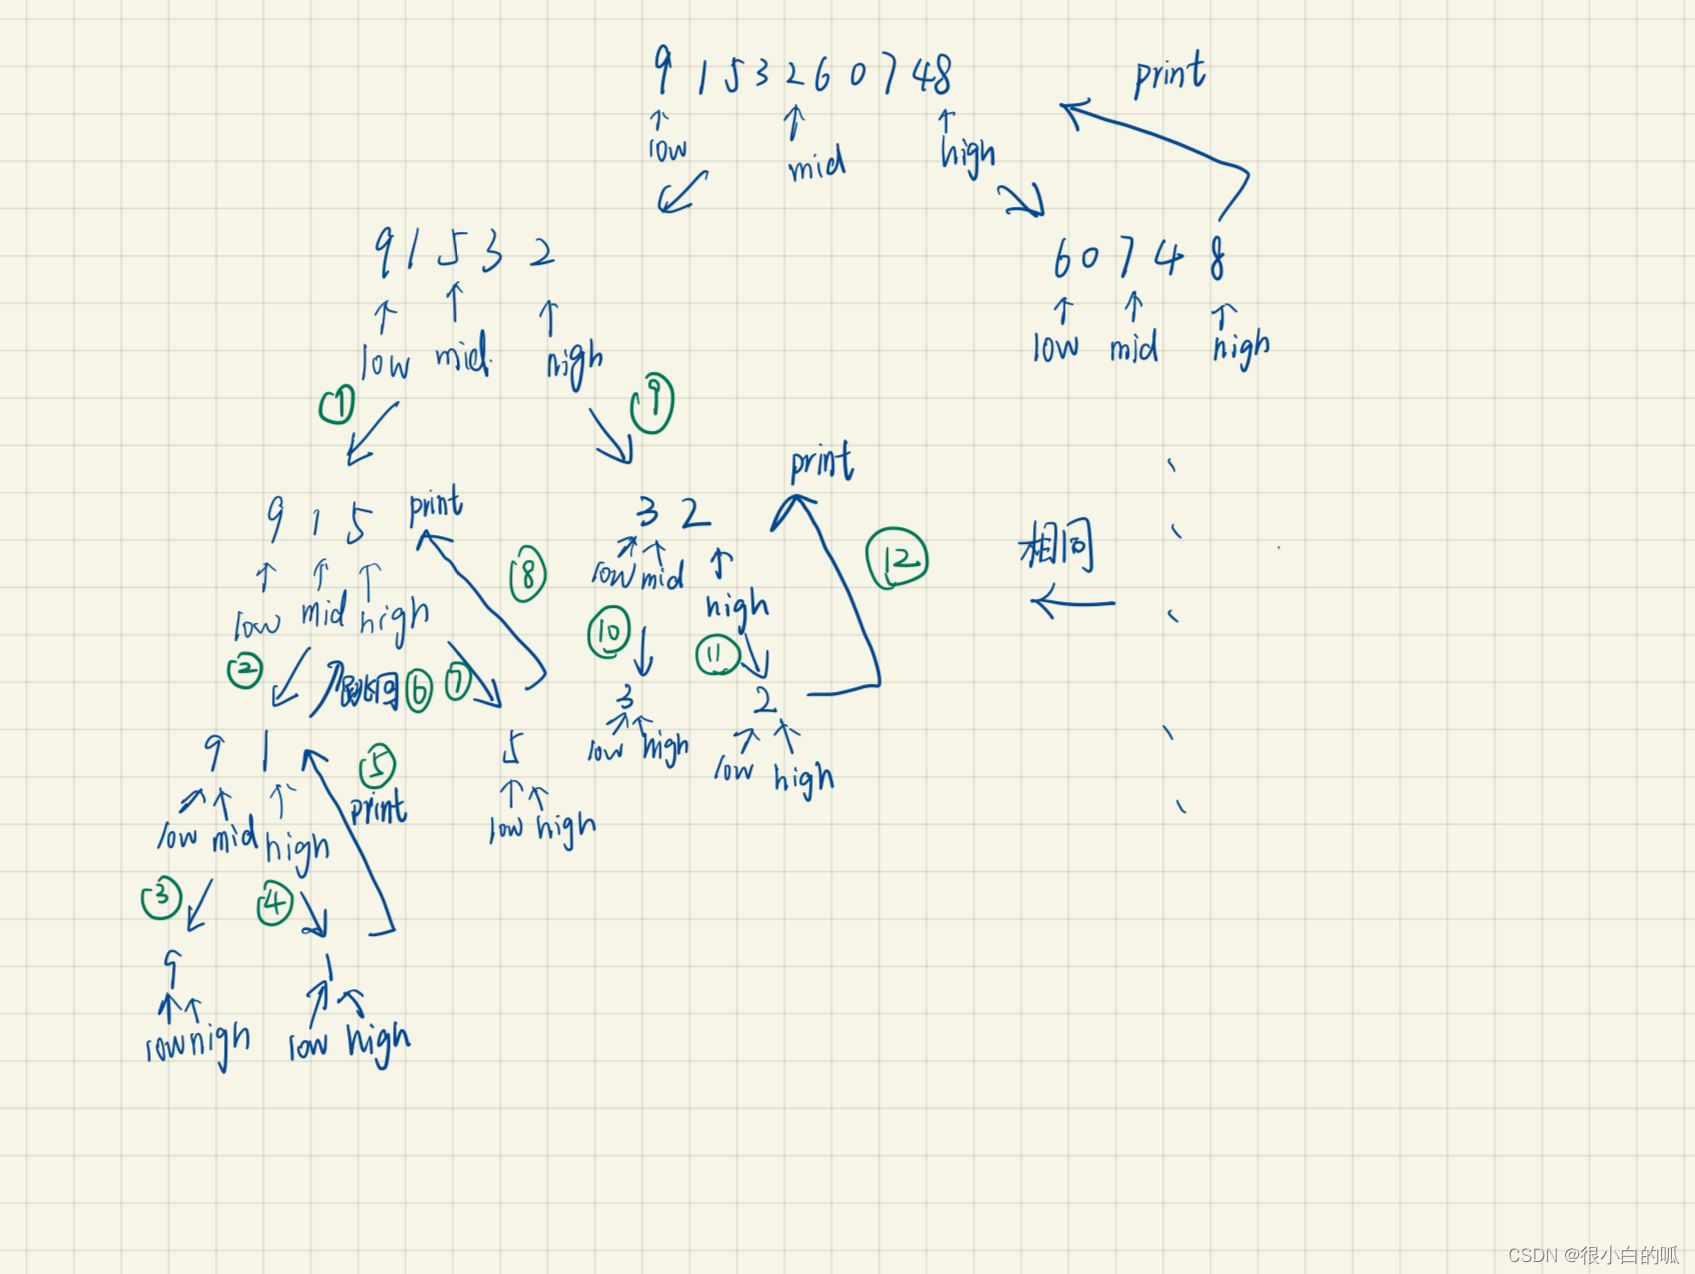 9 1 5 3 2 6 0 7 4 8
print
low
mid
high
9 1 5 3 2
6 0 7 4 8
low mid high
low mid high
① ⑨
print
9 1 5 print
3 2
相同
⑧
⑫
low mid high
low mid
high
② ⑥ ⑦
⑩ ⑪
3 2
9 1
⑤
print
5
low high
low high
low mid high
low high
③ ④
9 1
low high low high
CSDN @很小白的呱